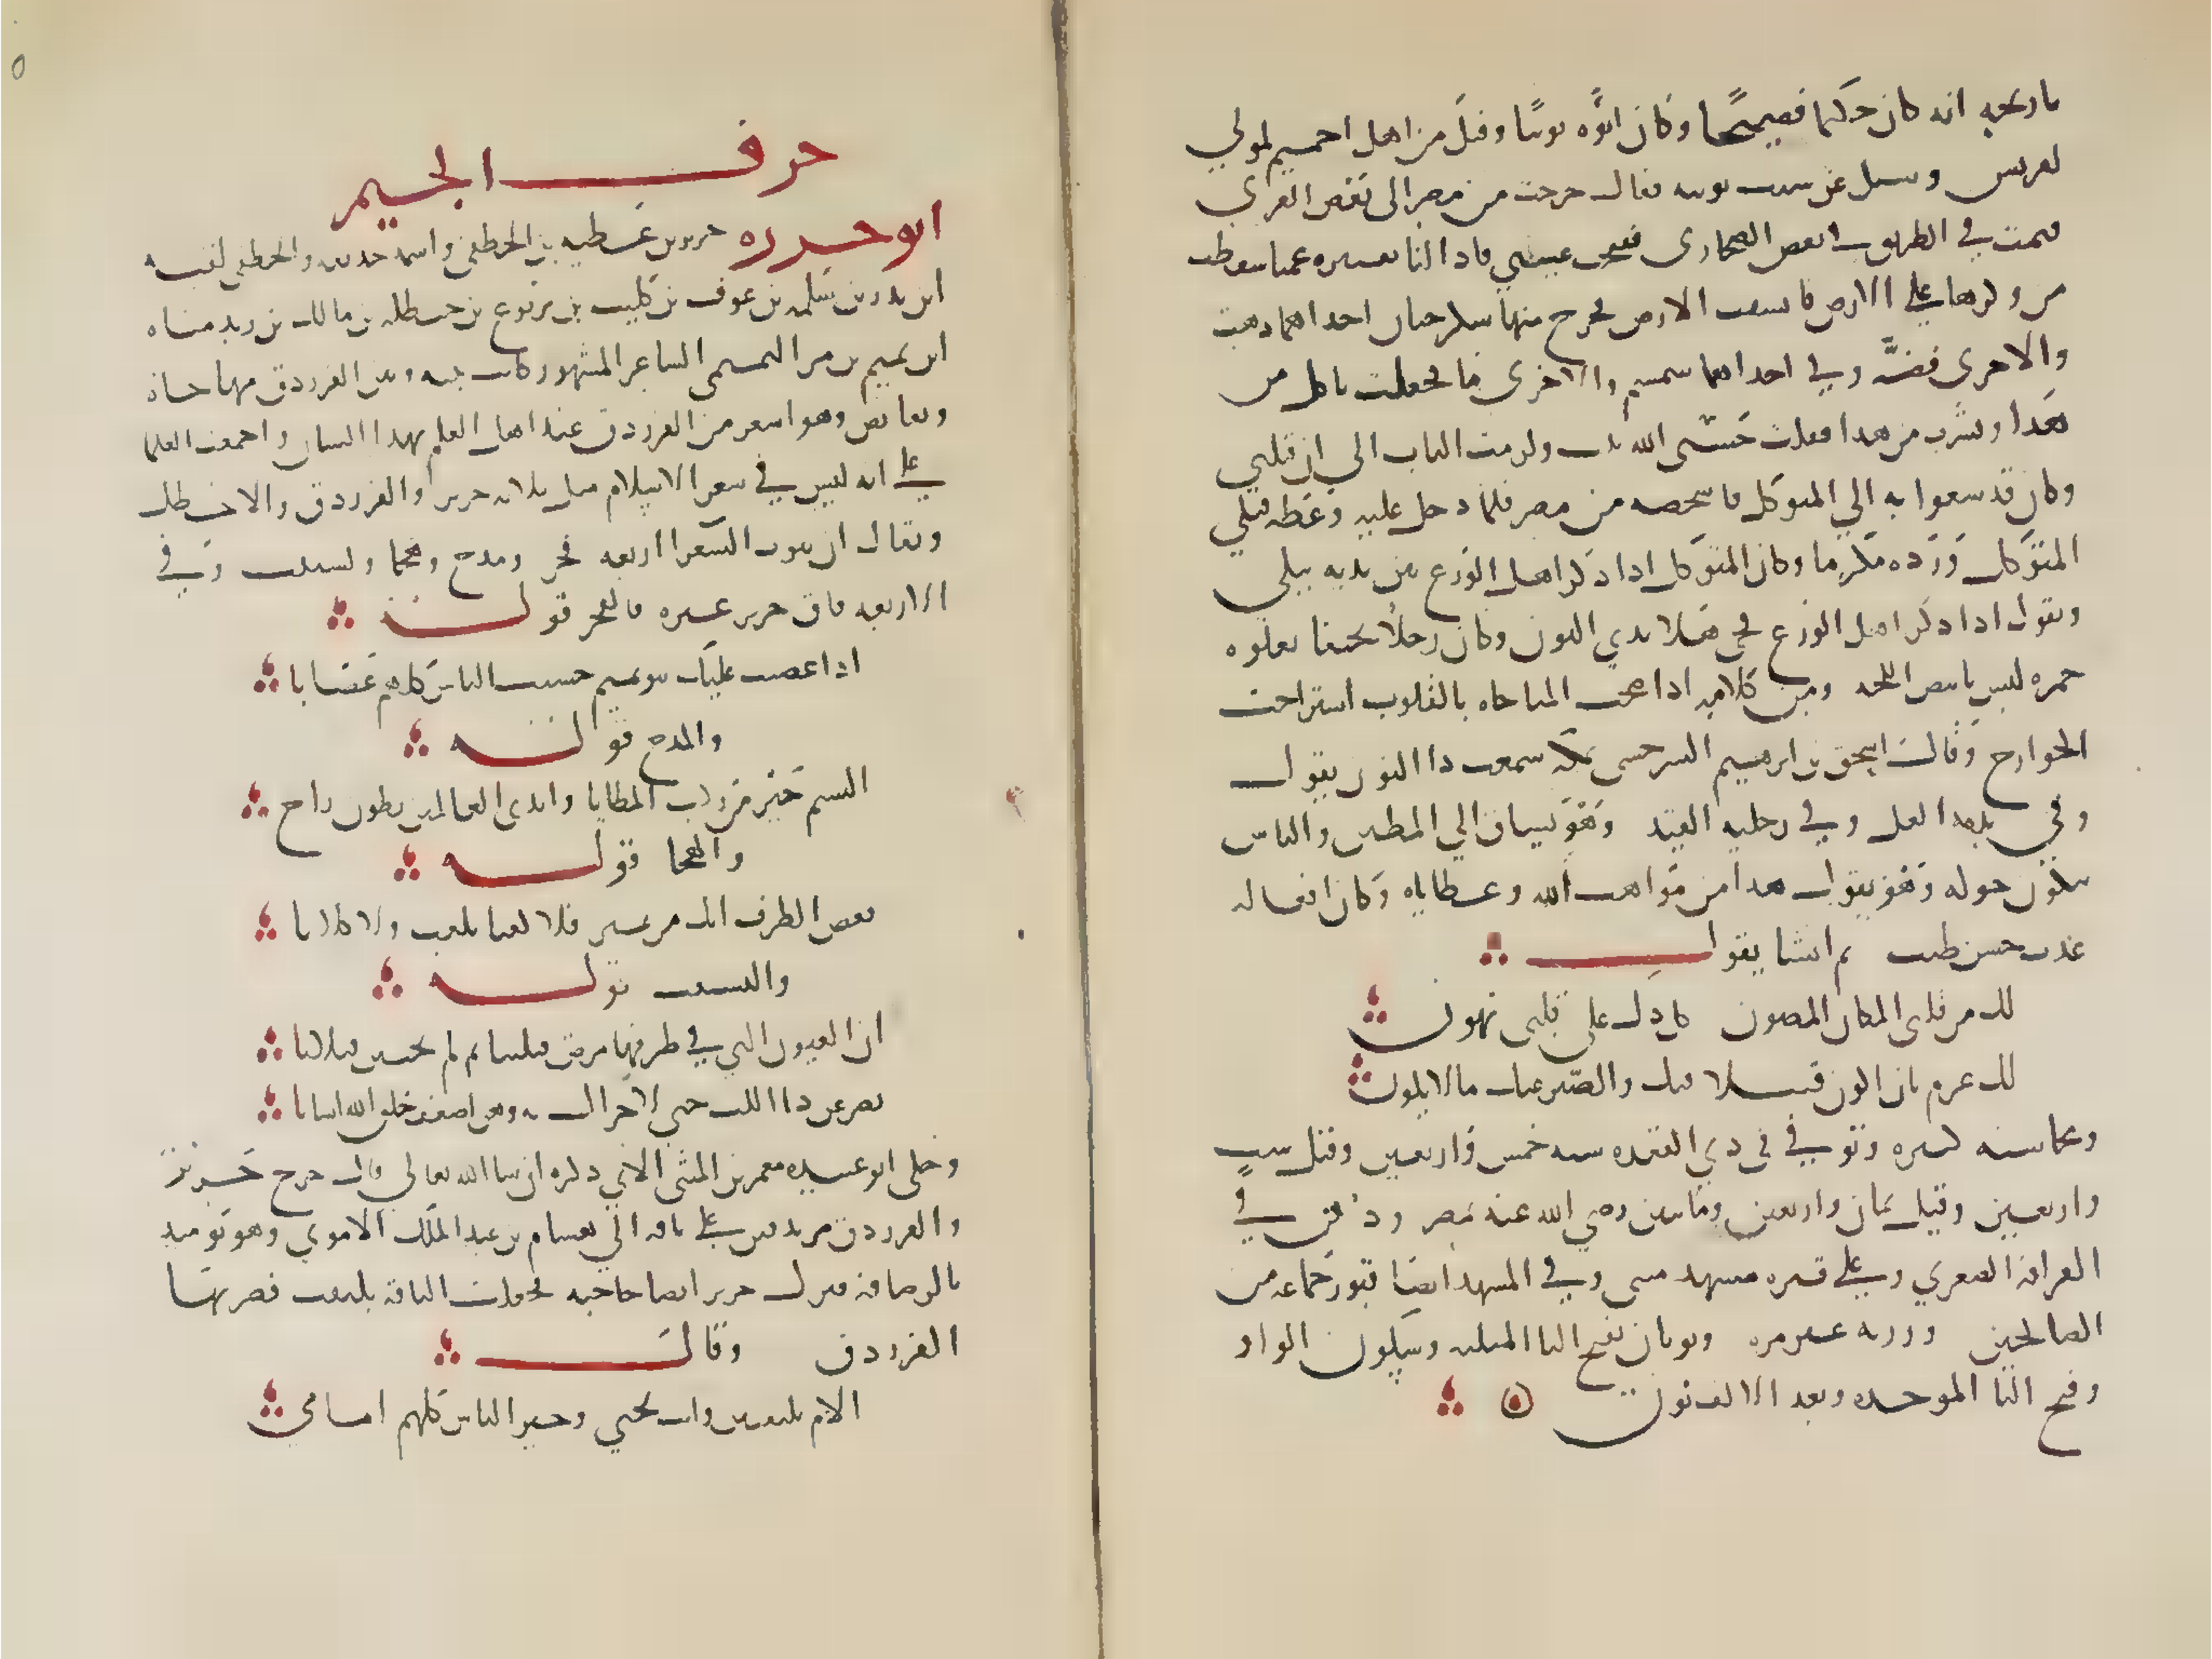 تاريخه انه كان حكيما فصيحا وكان ابوه نوبيا وقيل من اهل اخميم مولي
لقريش وسيل عن سبب توبته فقال خرجت من مصر الى بعض القري
فنمت في الطريق في بعض الصحاري ففتحت عيني فاذا انا بقنبره عميا سقطت
من وكرها علي الارض فانشقت الارض فخرج منها سكرجتان احداهما ذهب
والاخرى فضة وفي احداهما سمسم والاخرى ما فجعلت تاكل من
هذا وتشرب من هذا فقلت حسبي الله تبت ولزمت الباب الي ان قبلني
وكان قد سعوا به الي المتوكل فاستحضره من مصر فلما دخل عليه وعظه فبكي
المتوكل ورده مكرما وكان المتوكل اذا ذكر اهل الورع بين يديه يبكي
ويقول اذا ذكر اهل الورع فحي هلا بذي النون وكان رجلا نحيفا تعلوه
حمره ليس بابيض اللحيه ومن كلامه اذا صحت المناجاه بالقلوب استراحت
الجوارح وقال اسحق بن ابرهيم السرخسي بمكة سمعت ذا النون يقول
وفي يده الغل وفي رجليه القيد وهو يساق الي المطبق والناس
يبكون حوله وهو يقول هذا من مواهب الله وعطاياه وكل فعاله
عذب حسن طيب ثم انشا يقول
لك من قلبي المكان المصون كل ذل علي قلبي يهون
لك عزم بان اكون قتيلا فيك والصبر عنك ما لا يكون
ومحاسنه كثيره وتوفي في ذي القعده سنه خمس واربعين وقيل ست
واربعين وقيل ثمان واربعين ومايتين رضي الله عنه بمصر ودفن في
القرافه الصغري وعلي قبره مشهد مبني وفي المشهد ايضا قبور جماعه من
الصالحين وزرته غير مره وثوبان بفتح الثا المثلثه وسكون الواو
وفتح البا الموحده وبعد الالف نون
حرف الجيم
ابو حزره جرير بن عطيه بن الخطفي واسمه حذيفه والخطفي لقبه
ابن بدر بن سلمه بن عوف بن كليب بن يربوع بن حنظله بن مالك بن زيد مناه
ابن تميم بن مر التميمي الشاعر المشهور كانت بينه وبين الفرزدق مهاجاه
ونقايض وهو اشعر من الفرزدق عند اهل العلم بهذا الشان واجمعت العلما
علي انه ليس في شعر الاسلام مثل ثلاثه جرير والفرزدق والاخطل
ويقال ان بيوت الشعرا اربعه فخر ومدح وهجا ونسيب وفي
الاربعه فاق جرير غيره فالفخر قوله
اذا غضبت عليك بنو تميم حسبت الناس كلهم غضابا
والمدح قوله
الستم خير من ركب المطايا واندى العالمين بطون راح
والهجا قوله
فغض الطرف انك من نمير فلا كعبا بلغت ولا كلابا
والنسيب قوله
ان العيون التي في طرفها مرض قتلننا ثم لم يحيين قتلانا
يصرعن ذا اللب حتي لا حراك به وهن اضعف خلق الله انسانا
وحكي ابو عبيده معمر بن المثنى الاتي ذكره ان شا الله تعالي قال خرج جرير
والفرزدق مرتدفين علي ناقه الي هشام بن عبد الملك الاموي وهو يوميذ
بالرصافه فنزل جرير لقضا حاجته فجعلت الناقة تتلفت فضربها
الفرزدق وقال
الام تلفتين وانت تحتي وخير الناس كلهم امامي